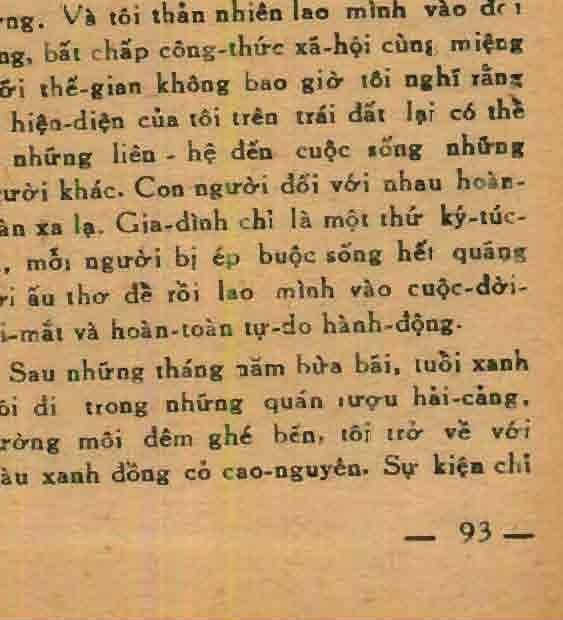 ng. Và tôi thản nhiên lao mình vào
ng, bất chấp công-thức xã-hội cùng miệng
ới thế-gian không bao giờ tôi nghĩ rằng
hiện-diện của tôi trên trái đất lại có thể
những liên - hệ đến cuộc sống những
ười khác. Con người đối với nhau hoàn-
àn xa lạ. Gia-đình chỉ là một thứ ký-túc-
, mỗi người bị ép buộc sống hết quãng
ời ấu thơ để rồi lao mình vào cuộc-đời-
i-mắt và hoàn-toàn tự-do hành-động.
Sau những tháng năm bừa bãi, tuổi xanh
ôi đi trong những quán rượu hải-cảng,
ường mỗi đêm ghé bến, tôi trở về với
àu xanh đồng cỏ cao-nguyên. Sự kiện chỉ
— 93 —